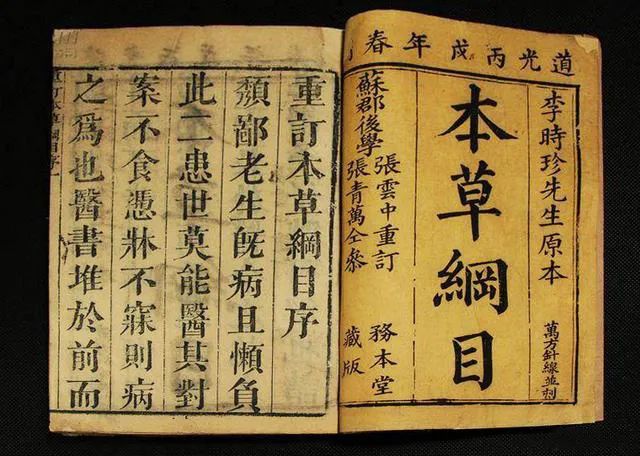 道光丙戌年春
李時珍先生原本
萬方針線並刻
本草綱目
蘇郡後學
張雲中重訂
張青萬仝參
務本堂
藏版
重訂本草綱目序
頽鄙老生旣病且懶負
此二患世莫能醫其對
案不食憑牀不寐則病
之爲也醫書堆於前而
訂本草綱目序